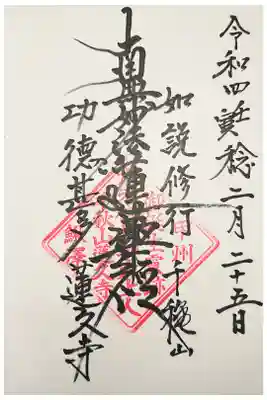 令和四壬寅稔二月二十五日
如説修行 千穐山
南無妙法蓮華經
功徳甚多 蓮久寺
甲州